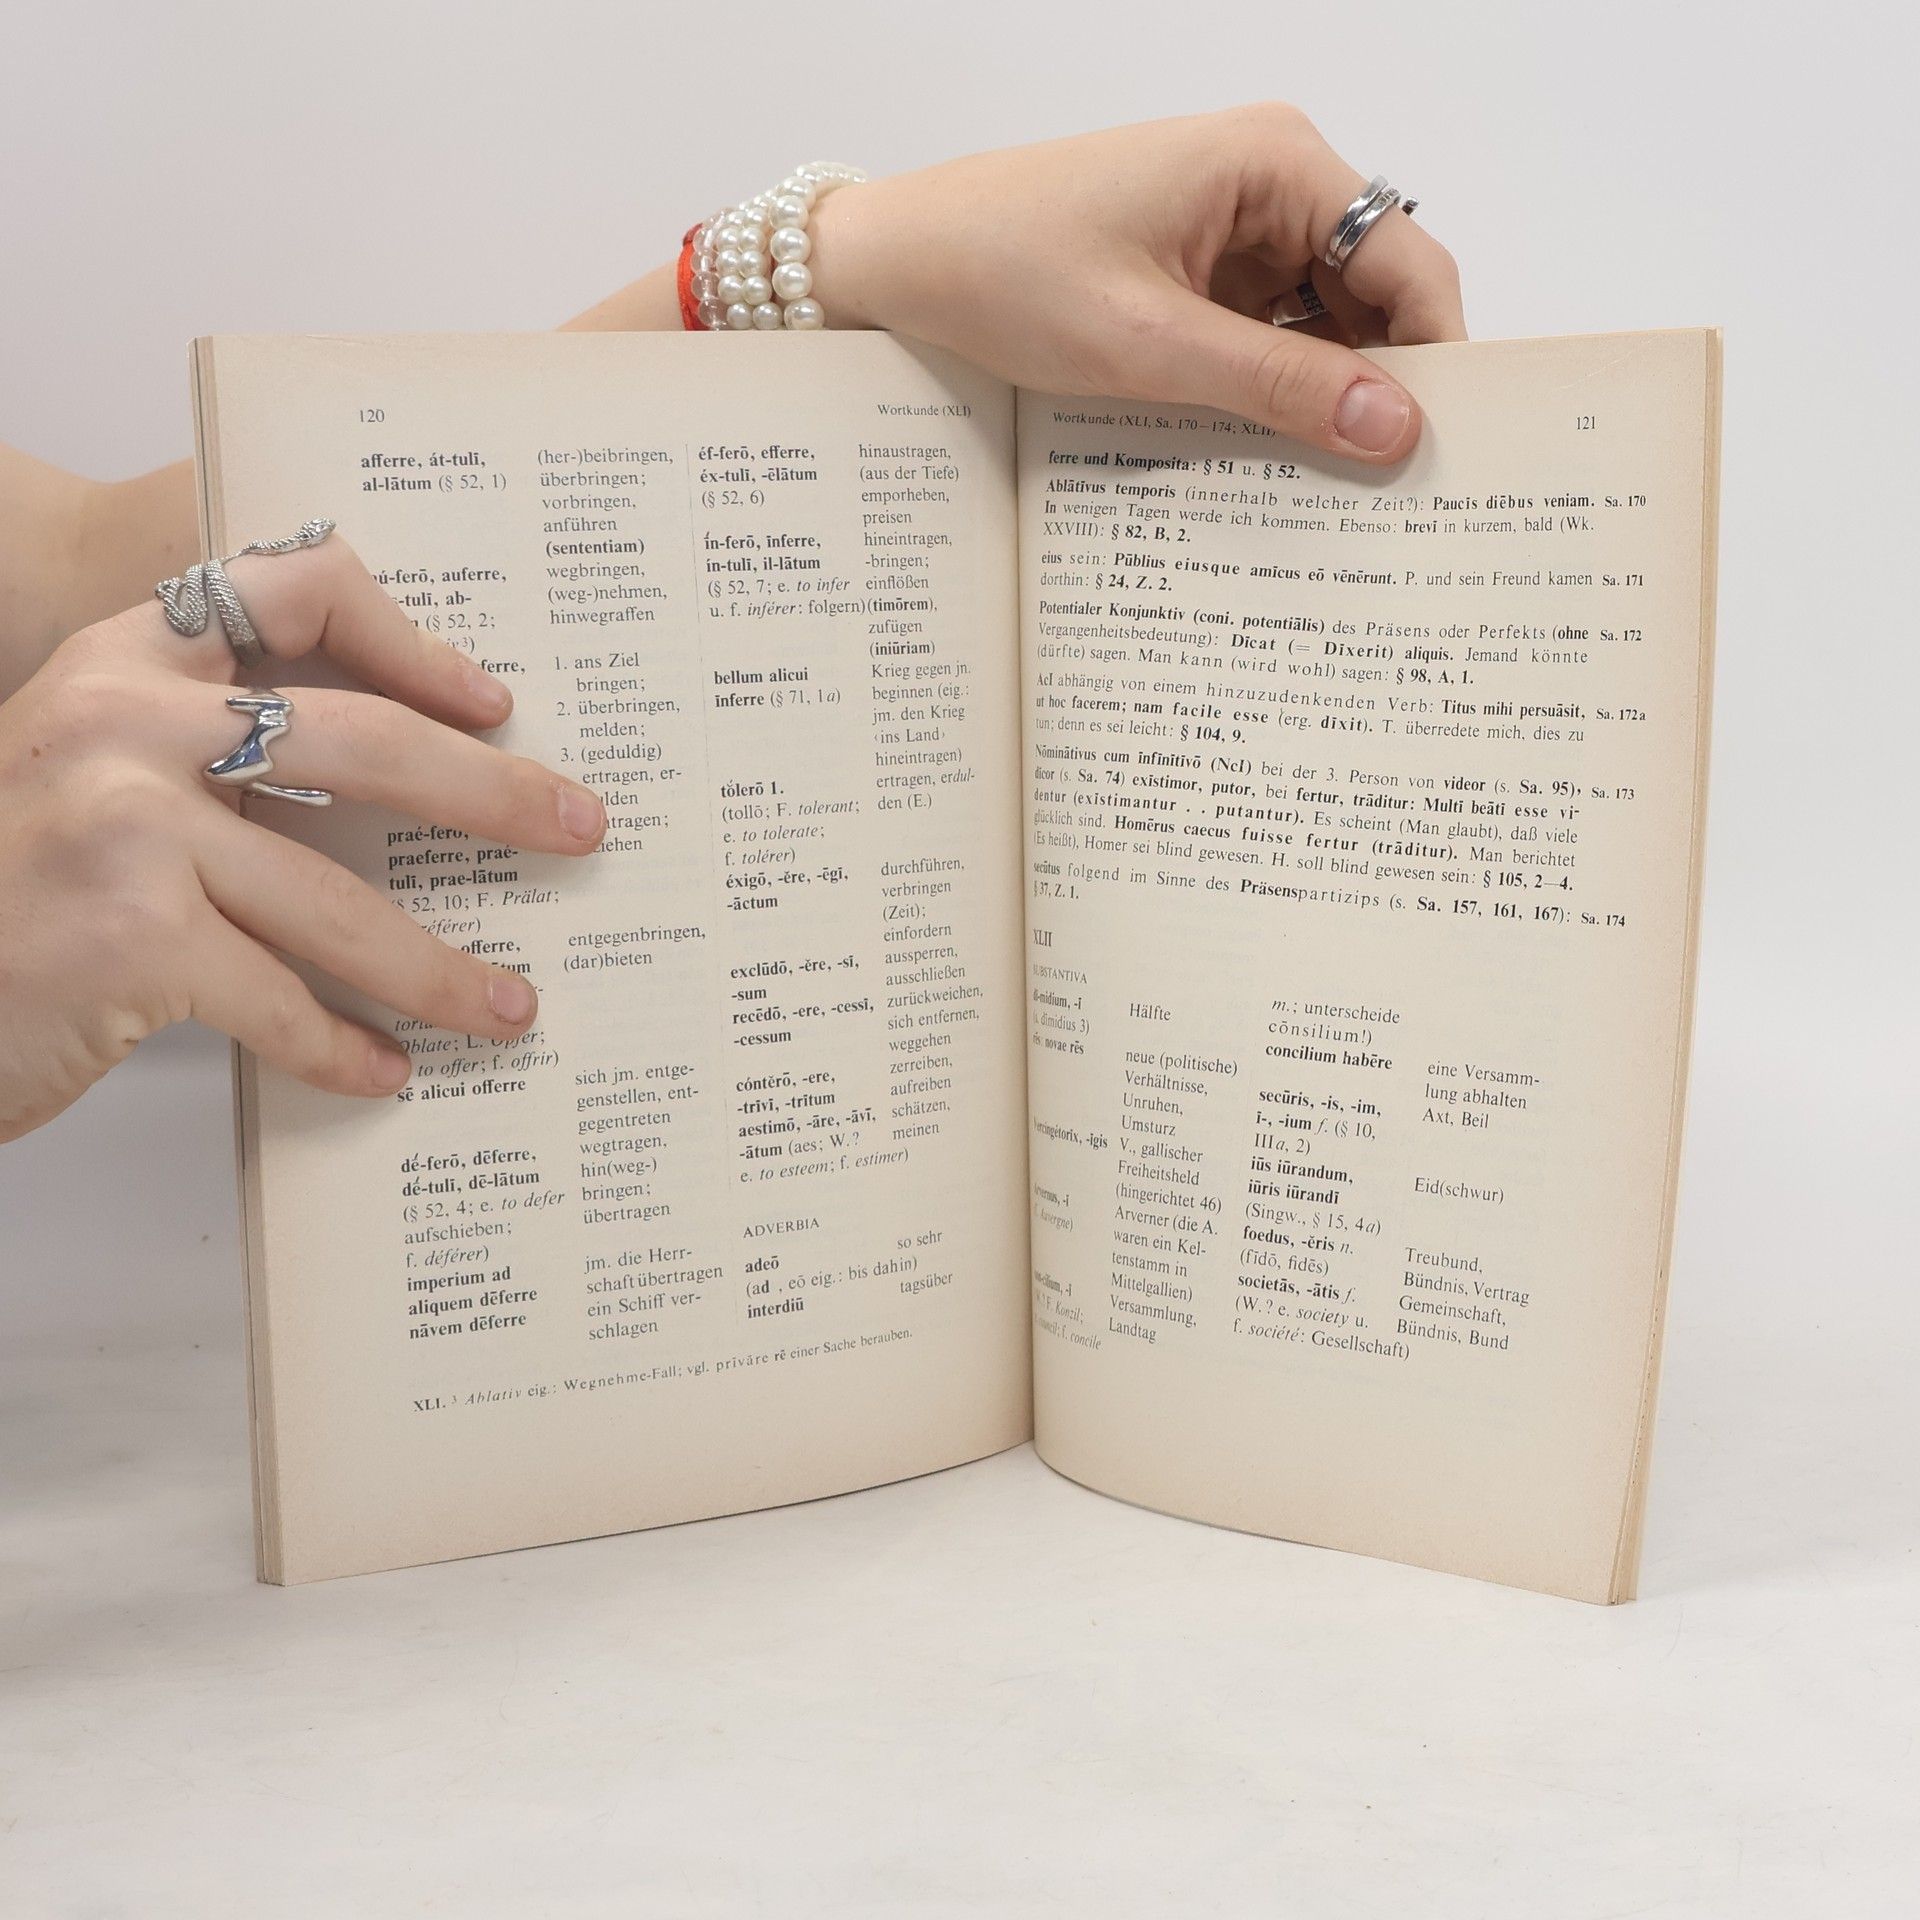 120
Wortkunde (XLI)
afferre, át-tulī,
al-lātum (§ 52, 1)
(her-)beibringen,
überbringen;
vorbringen,
anführen
(sententiam)
ú-ferō, auferre,
-tulī, ab-
(§ 52, 2;
wegbringen,
(weg-)nehmen,
hinwegraffen
ferre,
1. ans Ziel
bringen;
2. überbringen,
melden;
3. (geduldig)
ertragen, er-
ulden
ntragen;
ziehen
praé-ferō,
praeferre, praé-
tulī, prae-lātum
(§ 52, 10; F. Prälat;
référer)
offerre,
entgegenbringen,
(dar)bieten
Oblate; L. Opfer;
to offer; f. offrir)
sē alicui offerre
sich jm. entge-
genstellen, ent-
gegentreten
dḗ-ferō, dēferre,
dḗ-tulī, dē-lātum
(§ 52, 4; e. to defer
aufschieben;
f. déférer)
wegtragen,
hin(weg-)
bringen;
übertragen
imperium ad
aliquem dēferre
jm. die Herr-
schaft übertragen
nāvem dēferre
ein Schiff ver-
schlagen
éf-ferō, efferre,
éx-tulī, -ēlātum
(§ 52, 6)
hinaustragen,
(aus der Tiefe)
emporheben,
preisen
ī́n-ferō, īnferre,
ín-tulī, il-lātum
(§ 52, 7; e. to infer
u. f. inférer: folgern)
hineintragen,
-bringen;
einflößen
(timōrem),
zufügen
(iniūriam)
bellum alicui
īnferre (§ 71, 1a)
Krieg gegen jn.
beginnen (eig.:
jm. den Krieg
‹ins Land›
hineintragen)
tólerō 1.
(tollō; F. tolerant;
e. to tolerate;
f. tolérer)
ertragen, erdul-
den (E.)
éxigō, -ĕre, -ēgī,
-āctum
durchführen,
verbringen
(Zeit);
einfordern
exclūdō, -ĕre, -sī,
-sum
aussperren,
ausschließen
recēdō, -ere, -cessī,
-cessum
zurückweichen,
sich entfernen,
weggehen
cóntĕrō, -ere,
-trīvī, -trītum
zerreiben,
aufreiben
aestimō, -āre, -āvī,
-ātum (aes; W.?
e. to esteem; f. estimer)
schätzen,
meinen
ADVERBIA
adeō
(ad , eō eig.: bis dahin)
so sehr
interdiū
tagsüber
XLI. ³ Ablativ eig.: Wegnehme-Fall; vgl. prīvāre rē einer Sache berauben.
Wortkunde (XLI, Sa. 170–174; XLII)
121
ferre und Komposita: § 51 u. § 52.
Ablātīvus temporis (innerhalb welcher Zeit?): Paucīs diēbus veniam. Sa. 170
In wenigen Tagen werde ich kommen. Ebenso: brevī in kurzem, bald (Wk.
XXVIII): § 82, B, 2.
eius sein: Pūblius eiusque amīcus eō vēnērunt. P. und sein Freund kamen Sa. 171
dorthin: § 24, Z. 2.
Potentialer Konjunktiv (coni. potentiālis) des Präsens oder Perfekts (ohne Sa. 172
Vergangenheitsbedeutung): Dīcat (= Dīxerit) aliquis. Jemand könnte
(dürfte) sagen. Man kann (wird wohl) sagen: § 98, A, 1.
AcI abhängig von einem hinzuzudenkenden Verb: Titus mihi persuāsit, Sa. 172a
ut hoc facerem; nam facile esse (erg. dīxit). T. überredete mich, dies zu
tun; denn es sei leicht: § 104, 9.
Nōminātīvus cum īnfīnītīvō (NcI) bei der 3. Person von videor (s. Sa. 95), Sa. 173
dīcor (s. Sa. 74) exīstimor, putor, bei fertur, trāditur: Multī beātī esse vi-
dentur (exīstimantur . . putantur). Es scheint (Man glaubt), daß viele
glücklich sind. Homērus caecus fuisse fertur (trāditur). Man berichtet
(Es heißt), Homer sei blind gewesen. H. soll blind gewesen sein: § 105, 2—4.
secūtus folgend im Sinne des Präsenspartizips (s. Sa. 157, 161, 167): Sa. 174
§ 37, Z. 1.
XLII
SUBSTANTIVA
dī-midium, -ī
(s. dīmidius 3)
Hälfte
rēs: novae rēs
neue (politische)
Verhältnisse,
Unruhen,
Umsturz
Vercingétorīx, -īgis
V., gallischer
Freiheitsheld
(hingerichtet 46)
Arvernus, -ī
Auvergne)
Arverner (die A.
waren ein Kel-
tenstamm in
Mittelgallien)
con-cilium, -ī
(W.? F. Konzil;
council; f. concile
Versammlung,
Landtag
m.; unterscheide
cōnsilium!)
concilium habēre
eine Versamm-
lung abhalten
secūris, -is, -im,
ī-, -ium f. (§ 10,
IIIa, 2)
Axt, Beil
iūs iūrandum,
iūris iūrandī
(Singw., § 15, 4a)
Eid(schwur)
foedus, -ĕris n.
(fīdō, fidēs)
Treubund,
Bündnis, Vertrag
societās, -ātis f.
(W.? e. society u.
f. société: Gesellschaft)
Gemeinschaft,
Bündnis, Bund